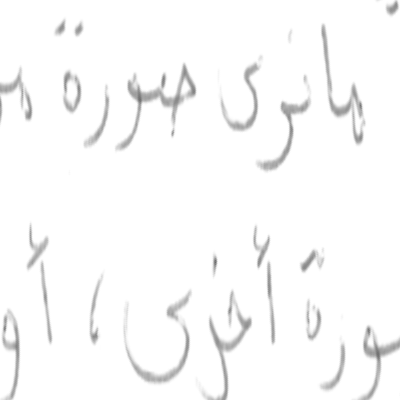 ما نرى صورة
صورة أخرى ، أو